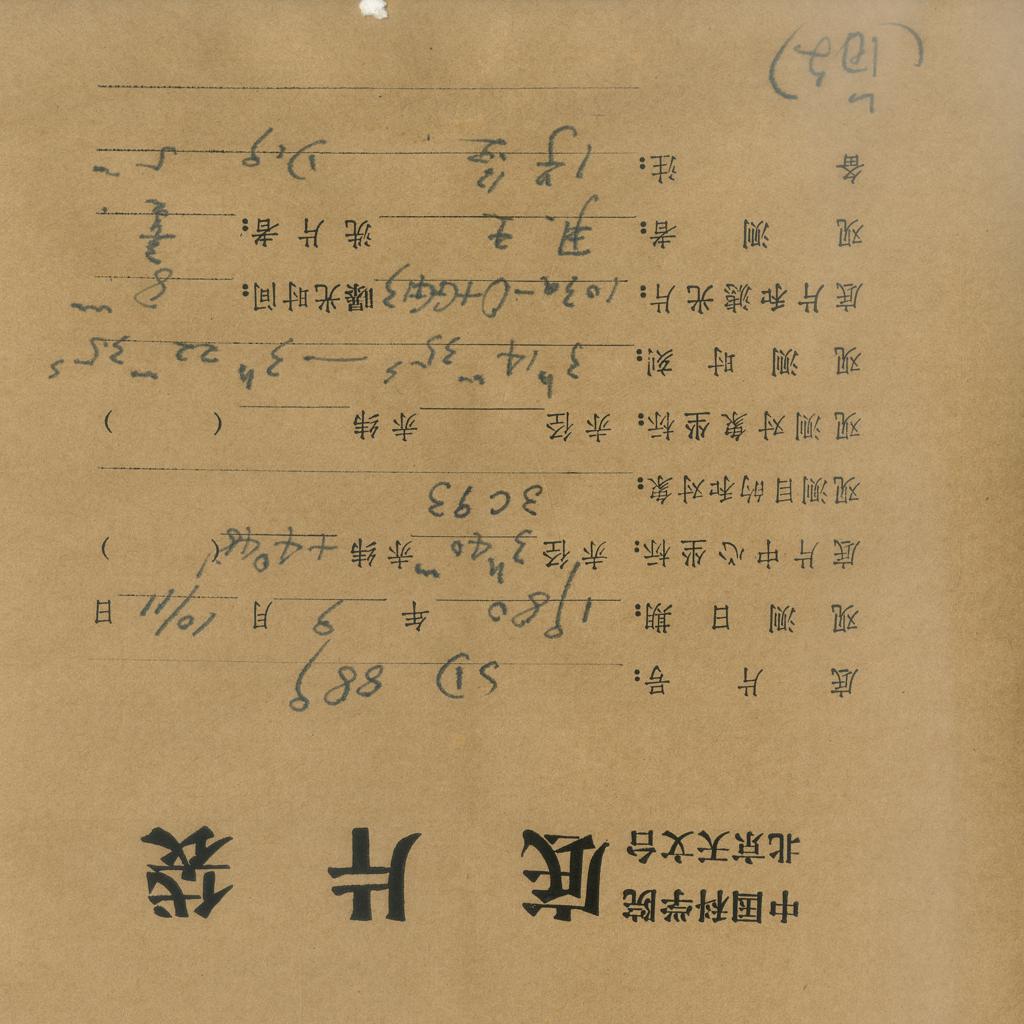 中国科学院
北京天文台 底片袋
底片号: 889
观测日期: 1980年9月10/11日
底片中心坐标: 赤径 3ʰ40ᵐ 赤纬 +4°48′ ( )
观测目的和对象: 3C93
观测对象坐标: 赤径 赤纬 ( )
观测时刻: 3ʰ14ᵐ35ˢ — 3ʰ22ᵐ35ˢ
底片和滤光片: 103a-O+GG13 曝光时间: 8ᵐ
观测者: 王 洗片者:
备注: 1号 D19 5ᵐ